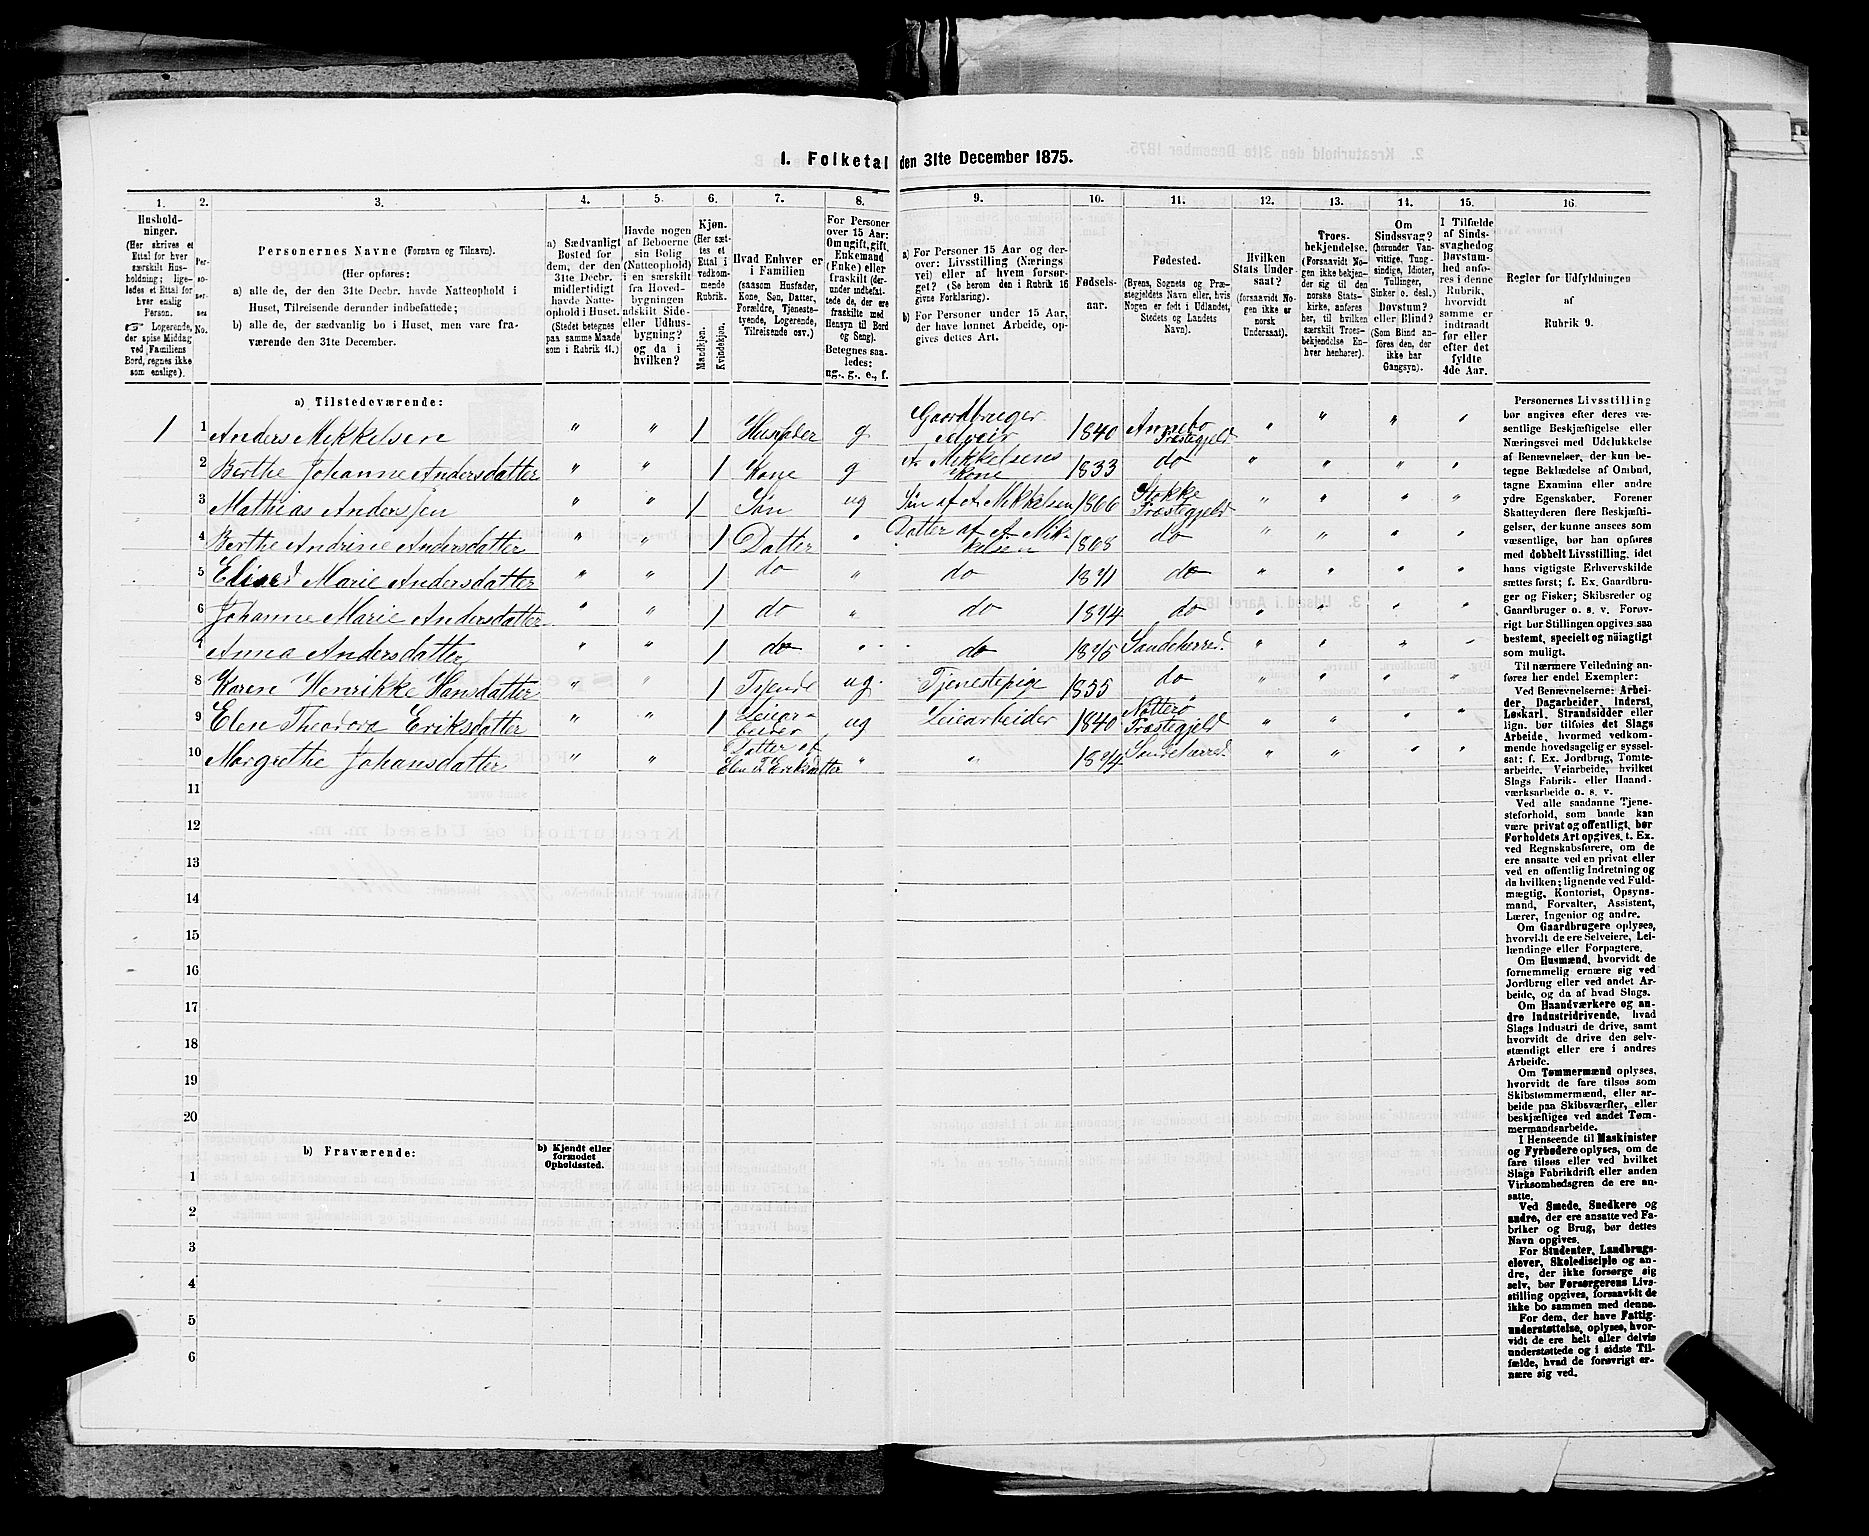 1. Folketal den 31te December 1875.
1. 2. 3. 4. 5. 6. 7. 8. 9. 10. 11. 12. 13. 14. 15. 16.
Hushold-
ninger.
(Her skrives et
Ettal for hver
særskilt Hus-
holdning; lige-
ledes et Ettal for
hver enslig
Person.
☞ Logerende,
der spise Middag
ved Familiens
Bord, regnes ikke
som enslige).
Per-
so-
ner-
nes
No.
Personernes Navne (Fornavn og Tilnavn).
(Her opføres:
a) alle de, der den 31te Decbr. havde Natteophold i
Huset, Tilreisende derunder indbefattede;
b) alle de, der sædvanlig bo i Huset, men vare fra-
værende den 31te December.
a) Sædvanligt
Bosted for
dem, der den
31te Decbr.
midlertidigt
havde Natte-
ophold i Huset.
(Stedet betegnes
paa samme Maade
som i Rubrik 11.)
Havde nogen
af Beboerne
sin Bolig
(Natteophold)
i en særskilt
fra Hoved-
bygningen
adskilt Side-
eller Udhus-
bygning?
og da i
hvilken?
Kjøn.
(Her sæt-
tes et
Ettal i
vedkom-
mende
Rubrik.
Mandkjøn.
Kvindekjøn.
Hvad Enhver er
i Familien
(saasom Husfader,
Kone, Søn, Datter,
Forældre, Tjeneste-
tyende, Logerende,
Tilreisende osv.)
For Personer
over 15 Aar:
Om ugift, gift,
Enkemand
(Enke) eller
fraskilt (der-
under indbefat-
tede de, der ere
fraskilte med
Hensyn til Bord
og Seng).
Betegnes saa-
ledes:
ug., g., e., f.
a) For Personer 15 Aar og der-
over: Livsstilling (Nærings-
vei) eller af hvem forsør-
get? (Se herom den i Rubrik 16
givne Forklaring).
b) For Personer under 15 Aar,
der have lønnet Arbeide, op-
gives dettes Art.
Fødsels-
aar.
Fødested.
(Byens, Sognets og Præ-
stegjeldets Navn eller, hvis
Nogen er født i Udlandet,
Stedets og Landets
Navn).
Hvilken
Stats Under-
saat?
(forsaavidt No-
gen ikke er
norsk
Undersaat).
Troes-
bekjendelse.
(Forsaavidt No-
gen ikke bekjen-
der sig til den
norske Stats-
kirke, anføres
her, til hvilken
særskilt Troes-
bekjendelse En-
hver henhører).
Om
Sindssvag?
(herunder Van-
vittige, Tung-
sindige, Idioter,
Tullinger,
Sinker o. desl.)
Døvstum?
eller Blind?
(Som Blind an-
føres den, der
ikke har
Gangsyn).
I Tilfælde
af Sinds-
svaghed og
Døvstum-
hed anfø-
res i denne
Rubrik,
hvorvidt
samme er
indtraadt
før eller
efter det
fyldte
4de Aar.
Regler for Udfyldningen
af
Rubrik 9.
a) Tilstedeværende:
1 1 Anders Mikkelsen " " 1 Husfader g Gaardbruger selveier 1840 Annebo Præstegjeld " " " "
2 Berthe Johanne Andersdatter " " 1 Kone g A. Mikkelsens Kone 1833 do " " " "
3 Mathias Andersen " " 1 Søn ug Søn af A. Mikkelsen 1866 Stokke Præstegjeld " " " "
4 Berthe Andrine Andersdatter " " 1 Datter " Datter af A. Mikkelsen 1868 do " " " "
5 Marie Andersdatter " " 1 do " do 1871 do " " " "
6 Johanne Marie Andersdatter " " 1 do " do 1874 do " " " "
7 Anna Andersdatter " " 1 do " do 1875 Sandeherred. " " " "
8 Karen Henrikke Hansdatter " " 1 Tyende ug. Tjenestepige 1855 do " " " "
9 Elen Theodora Eriksdatter " " 1 ug Leiearbeider 1840 Nøtterø Præstegjeld " " " "
10 Margrethe Johansdatter " " 1 Datter af Elen T. Eriksdatter " " 1874 Sandeherred. " " " "
11
12
13
14
15
16
17
18
19
20
b) Fraværende:
b) Kjendt eller
formodet
Opholdssted.
1
2
3
4
5
6
Personernes Livsstilling
bør angives efter deres væ-
sentlige Beskjæftigelse eller
Næringsvei med Udelukkelse
af Benævnelser, der kun be-
tegne Beklædelse af Ombud,
tagne Examina eller andre
ydre Egenskaber. Forener
Skatteyderen flere Beskjæfti-
gelser, der kunne ansees som
væsentlige, bør han opføres
med dobbelt Livsstilling, idet
hans vigtigste Erhvervskilde
sættes først; f. Ex. Gaardbru-
ger og Fisker; Skibsreder og
Gaardbruger o. s. v. Forøv-
rigt bør Stillingen opgives saa
bestemt, specielt og nøiagtigt
som muligt.
Til nærmere Veiledning an-
føres her endel Exempler:
Ved Benævnelserne: Arbei-
der, Dagarbeider, Inderst,
Løskarl, Strandsidder eller
lign. bør tilføies det Slags
Arbeide, hvormed vedkom-
mende hovedsagelig er syssel-
sat: f. Ex. Jordbrug, Tomte-
arbeide, Veiarbeide, hvilket
Slags Fabrik- eller Haand-
værksarbeide o. s. v.
Ved alle saadanne Tjene-
steforhold, som baade kan
være privat og offentligt, bør
Forholdets Art opgives, t. Ex.
ved Regnskabsførere, om de
ere ansatte ved en privat eller
ved en offentlig Indretning og
da hvilken; lignende ved Fuld-
mægtig, Kontorist, Opsyns-
mand, Forvalter, Assistent,
Lærer, Ingeniør og andre.
Om Gaardbrugere oplyses,
hvorvidt de ere Selveiere, Lei-
lændinge eller Forpagtere.
Om Husmænd, hvorvidt de
fornemmelig ernære sig ved
Jordbrug eller ved andet Ar-
beide, og da af hvad Slags.
Om Haandværkere og an-
dre Industridrivende, hvad
Slags Industri de drive, samt
hvorvidt de drive den selv-
stændigt eller ere i andres
Arbeide.
Om Tømmermænd oplyses,
hvorvidt de fare tilsøs som
Skibstømmermænd, eller ar-
beide paa Skibsværfter, eller
beskjæftiges ved andet Tøm-
mermandsarbeide.
I Henseende til Maskinister
og Fyrbødere oplyses, om de
fare tilsøs eller ved hvilket
Slags Fabrikdrift eller anden
Virksomhedsgren de ere an-
satte.
Ved Smede, Snedkere og
andre, der ere ansatte ved Fa-
briker og Brug, bør dettes
Navn opgives.
For Studenter, Landbrugs-
elever, Skoledisciple og an-
dre, der ikke forsørge sig
selv, bør Forsørgerens Livs-
stilling opgives, forsaavidt de
ikke bo sammen med denne.
For dem, der have Fattig-
understøttelse, oplyses, hvor-
vidt de ere helt eller delvis
understøttede og i sidste Til-
fælde, hvad de forøvrigt er-
nære sig ved.